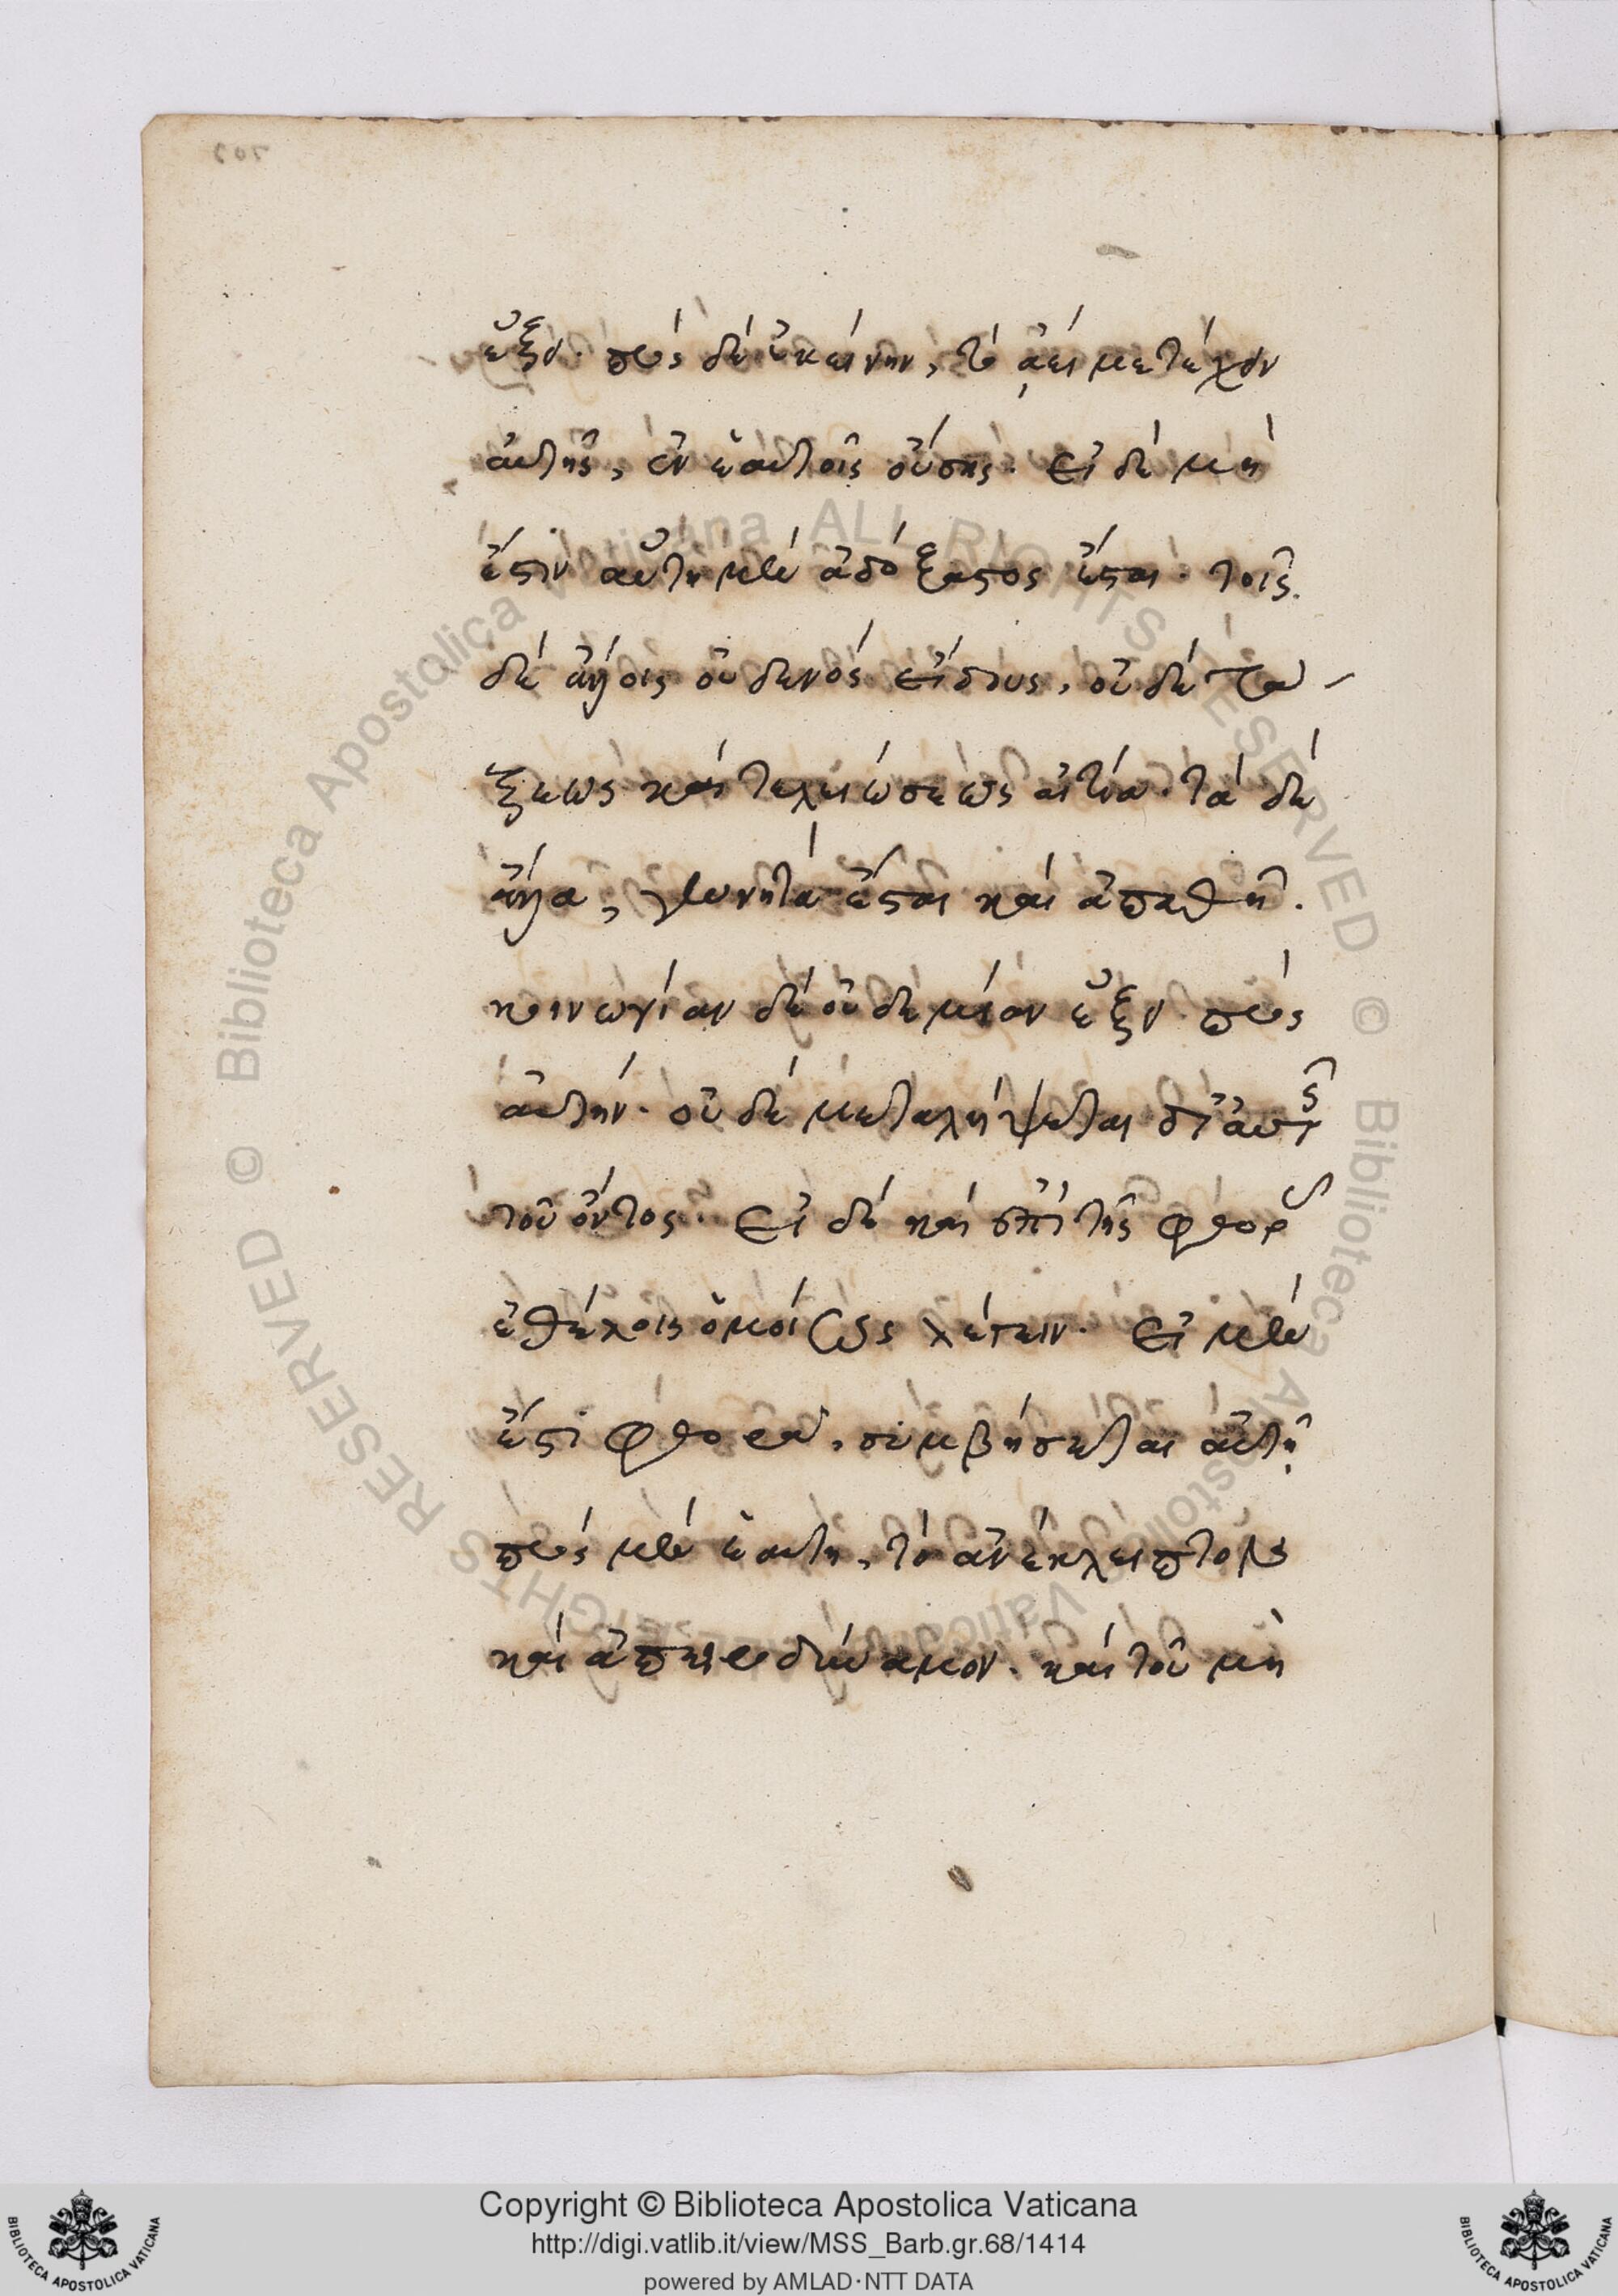 ἕξιν. πρὸς δὲ ἐκείνην, τὸ ἀεὶ μετέχον
αὐτῆς, ἐν ἑαυτοῖς οὔσης. εἰ δὲ μὴ
ἔστιν αὕτη μὲν ἀδόξαστος ἔσται. τοῖς
δὲ ἄλλοις οὐδενὸς εἴδους, οὐδὲ τά-
ξεως καὶ τελειώσεως αἰτία. τὰ δὲ
ἄλλα, γεννητὰ ἔσται καὶ ἀπαθῆ.
κοινωνίαν δὲ οὐδεμίαν ἕξει πρὸς
αὐτήν. οὐδὲ μεταλήψεται δι' αὐτῆς
τοῦ ὄντος. εἰ δὲ καὶ ἐπὶ τῆς φθορᾶς
ἐθέλοις ὁμοίως λέγειν. εἰ μὲν
ἔστι φθορά, συμβήσεται αὐτῇ
πρὸς μὲν ἑαυτὴν, τὸ ἀνέκλειπτον
καὶ ἀπειροδύναμον. καὶ τοῦ μὴ
Copyright © Biblioteca Apostolica Vaticana
http://digi.vatlib.it/view/MSS_Barb.gr.68/1414
powered by AMLAD·NTT DATA
© Biblioteca Apostolica Vaticana ALL RIGHTS RESERVED
© Biblioteca Apostolica Vaticana ALL RIGHTS RESERVED
BIBLIOTECA APOSTOLICA VATICANA
BIBLIOTECA APOSTOLICA VATICANA